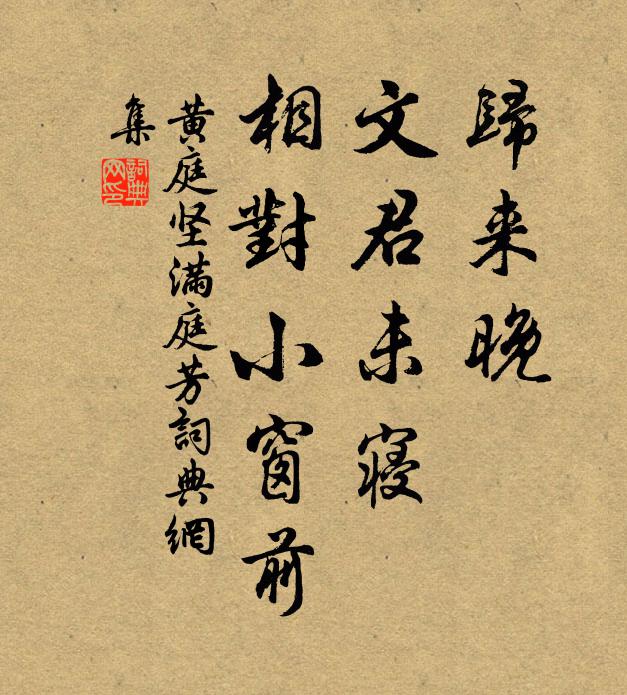 歸来晚
文君未寢
相對小窗前
黄庭坚滿庭芳詞典網
集
詞典
网印